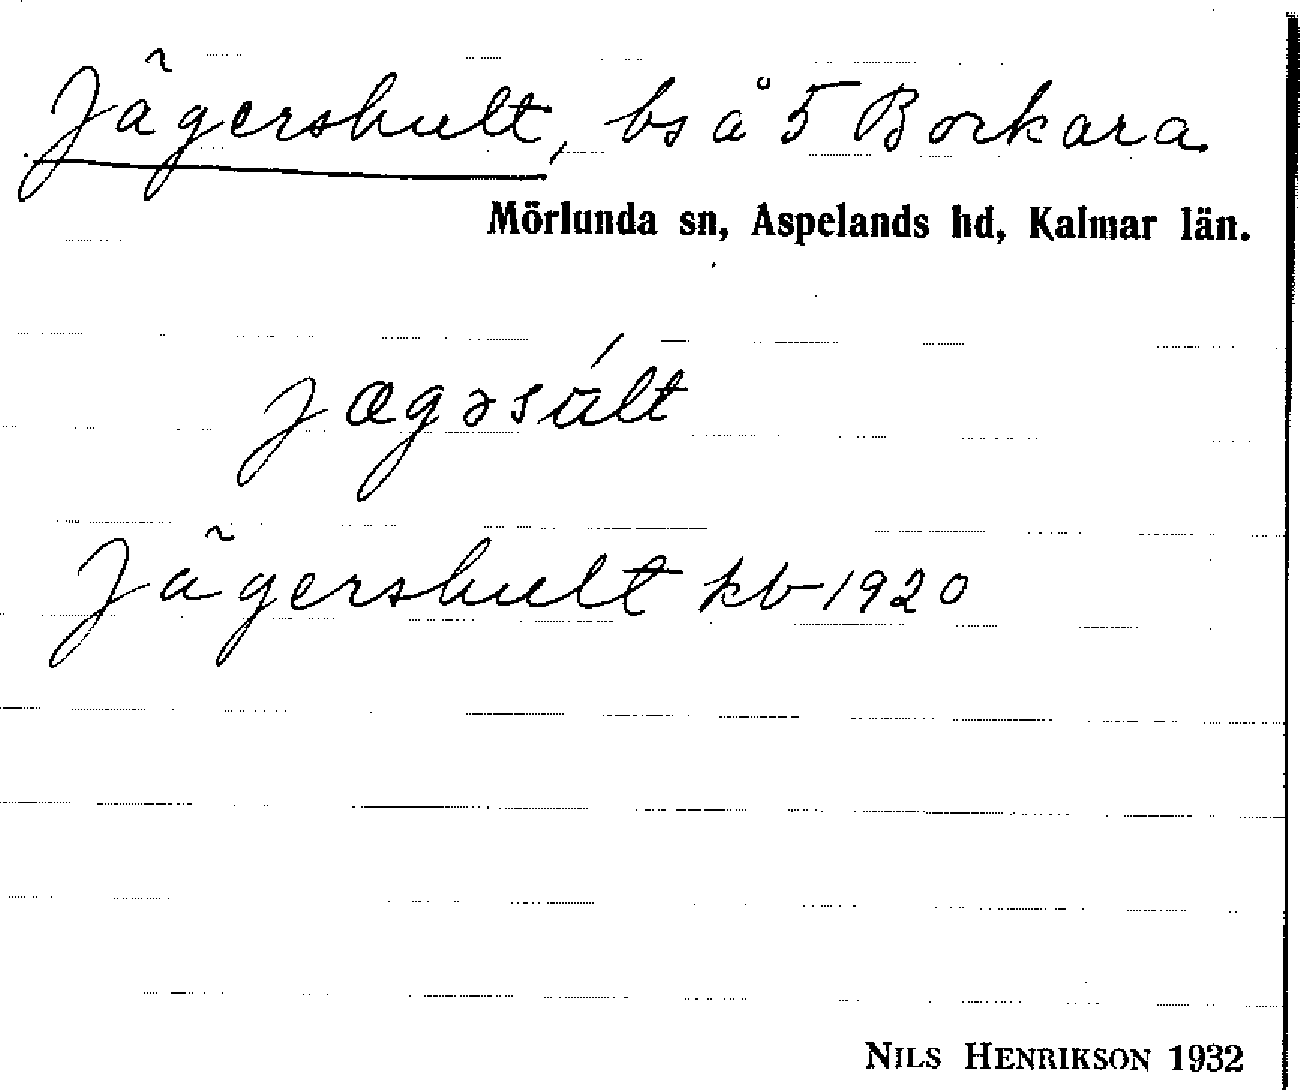 Jägershult, bs å 5 Bockara
Mörlunda sn, Aspelands hd, Kalmar län.
jægəsúlt
Jägershult kb 1920
NILS HENRIKSON 1932